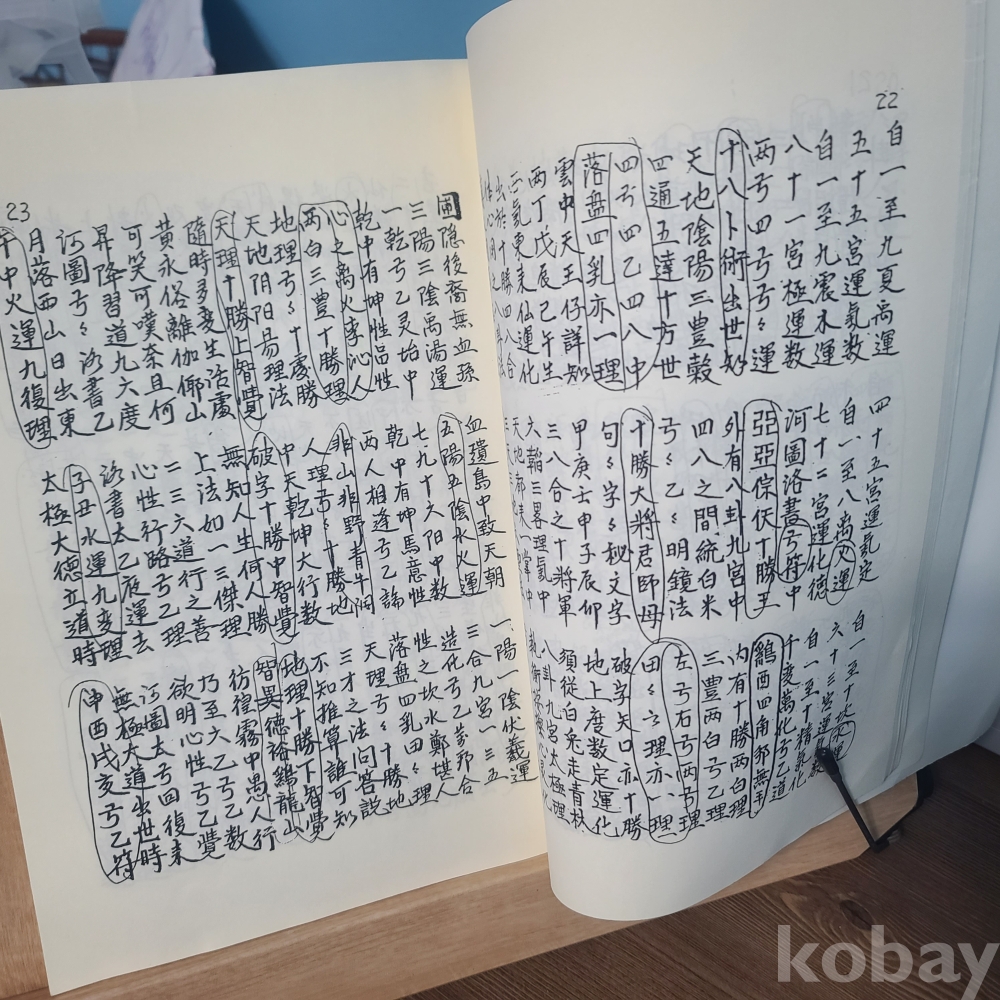 22
自一至九夏禹運
五十五宮運氣数
自一至九震木運
八十一宮極運数
两弓四弓弓〻運
十八卜術出世知
天地陰陽三豊穀
四通五達十方世
四弓四乙四八中
落盘四乳亦一理
雲中天王仔詳知
两丁戊辰己午生
二氣東来仙運化
出於十勝四八合
四十五宮運氣定
自一至八离火運
七十二宮運化德
河圖洛書弓符中
亞亞倧佺十勝王
外有八卦九宮中
四八之間統白米
弓〻乙〻明鏡法
十勝大將君師母
句〻字〻秘文字
甲庚壬甲子辰卯
三八合之十將軍
六韜三畧理氣中
自一至十坎水運
六十三宮運
自一至十精氣化
千変萬化弓乙道
鷄酉四角邪無
内有十勝两白理
三豊两白弓乙理
左弓右弓两弓理
田〻之理亦一理
破字矢口亦十勝
地上度数定運化
須從白兎走青林
八卦九宮太極理
23
隐後裔無血孫
三陽三陰禹湯運
一乾弓乙灵坮中
乾中有坤性品性
心之离火李沁人
两白三豊十勝理
地理弓〻十處勝
天地阴阳昜理法
天理十勝上智覺
隨時多変生活處
黄永俗離伽倻山
可笑可嘆奈且何
昇降習道九六度
河圖弓〻洛書乙
月落西山日出東
午中火運九復理
血遺島中致天朝
五陽五陰水火運
七九十久阳中数
乾中有坤馬意性
两人相逢弓乙論
非山非野青牛洞
人理弓〻十勝地
中天乾坤大行数
破字十勝中智覺
無知人生何人勝
上法如一三傑理
二三六道行之善
心性行路弓乙理
洛書太乙辰運去
子丑水運九変理
太極大德立道時
一陽一陰伏羲運
三合九宮一三五
造化弓乙艺邦合
性之坎水鄭堪人
落盘四乳田〻理
天理弓〻十勝地
三才之法問答説
不知推算誰可知
地理十勝下智覺
智異德裕鷄龍山
彷徨霧中愚人行
乃至六乙弓乙数
欲明心性弓乙覺
河圖太弓回復来
無極大道出世時
申酉戌亥弓乙符
kobay